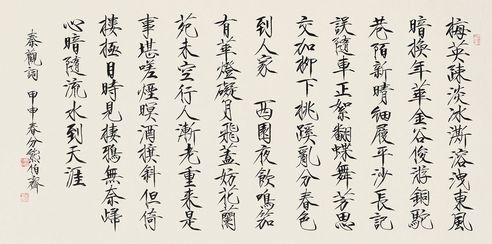 梅英疎淡冰澌溶洩東風
暗換年華金谷俊游銅駝
巷陌新晴細履平沙長記
誤隨車正絮翻蝶舞芳思
交加柳下桃蹊亂分春色
到人家 西園夜飲鳴笳
有華燈礙月飛蓋妨花蘭
苑未空行人漸老重來是
事堪嗟煙暝酒旗斜但倚
樓極目時見棲鴉無奈歸
心暗隨流水到天涯
秦觀詞 甲申春分熊伯齊